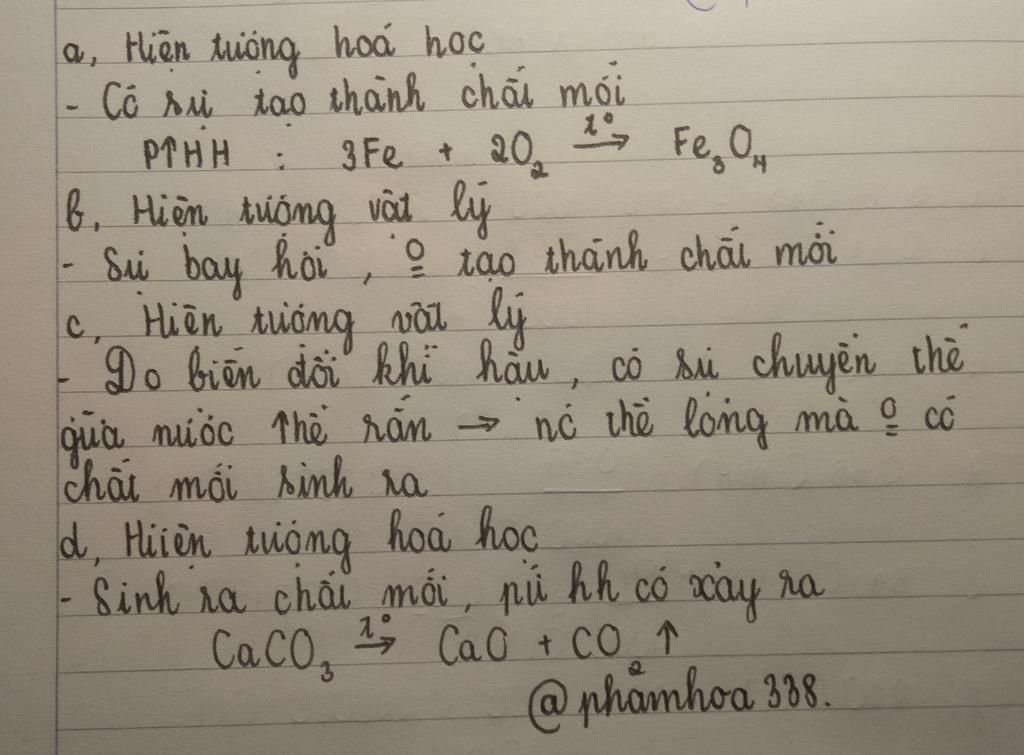 a, Hiện tượng hoá học
- Có sự tạo thành chất mới
PTHH : 3Fe + 2O₂ →(t°) Fe₃O₄
b, Hiện tượng vật lý
- Sự bay hơi, o̲̲ tạo thành chất mới
c, Hiện tượng vật lý
- Do biến đổi khí hậu, có sự chuyển thể
giữa nước thể rắn → nc thể lỏng mà o̲̲ có
chất mới sinh ra
d, Hiện tượng hoá học
- Sinh ra chất mới, pứ hh có xảy ra
CaCO₃ →(t°) CaO + CO₂ ↑
@phamhoa338.